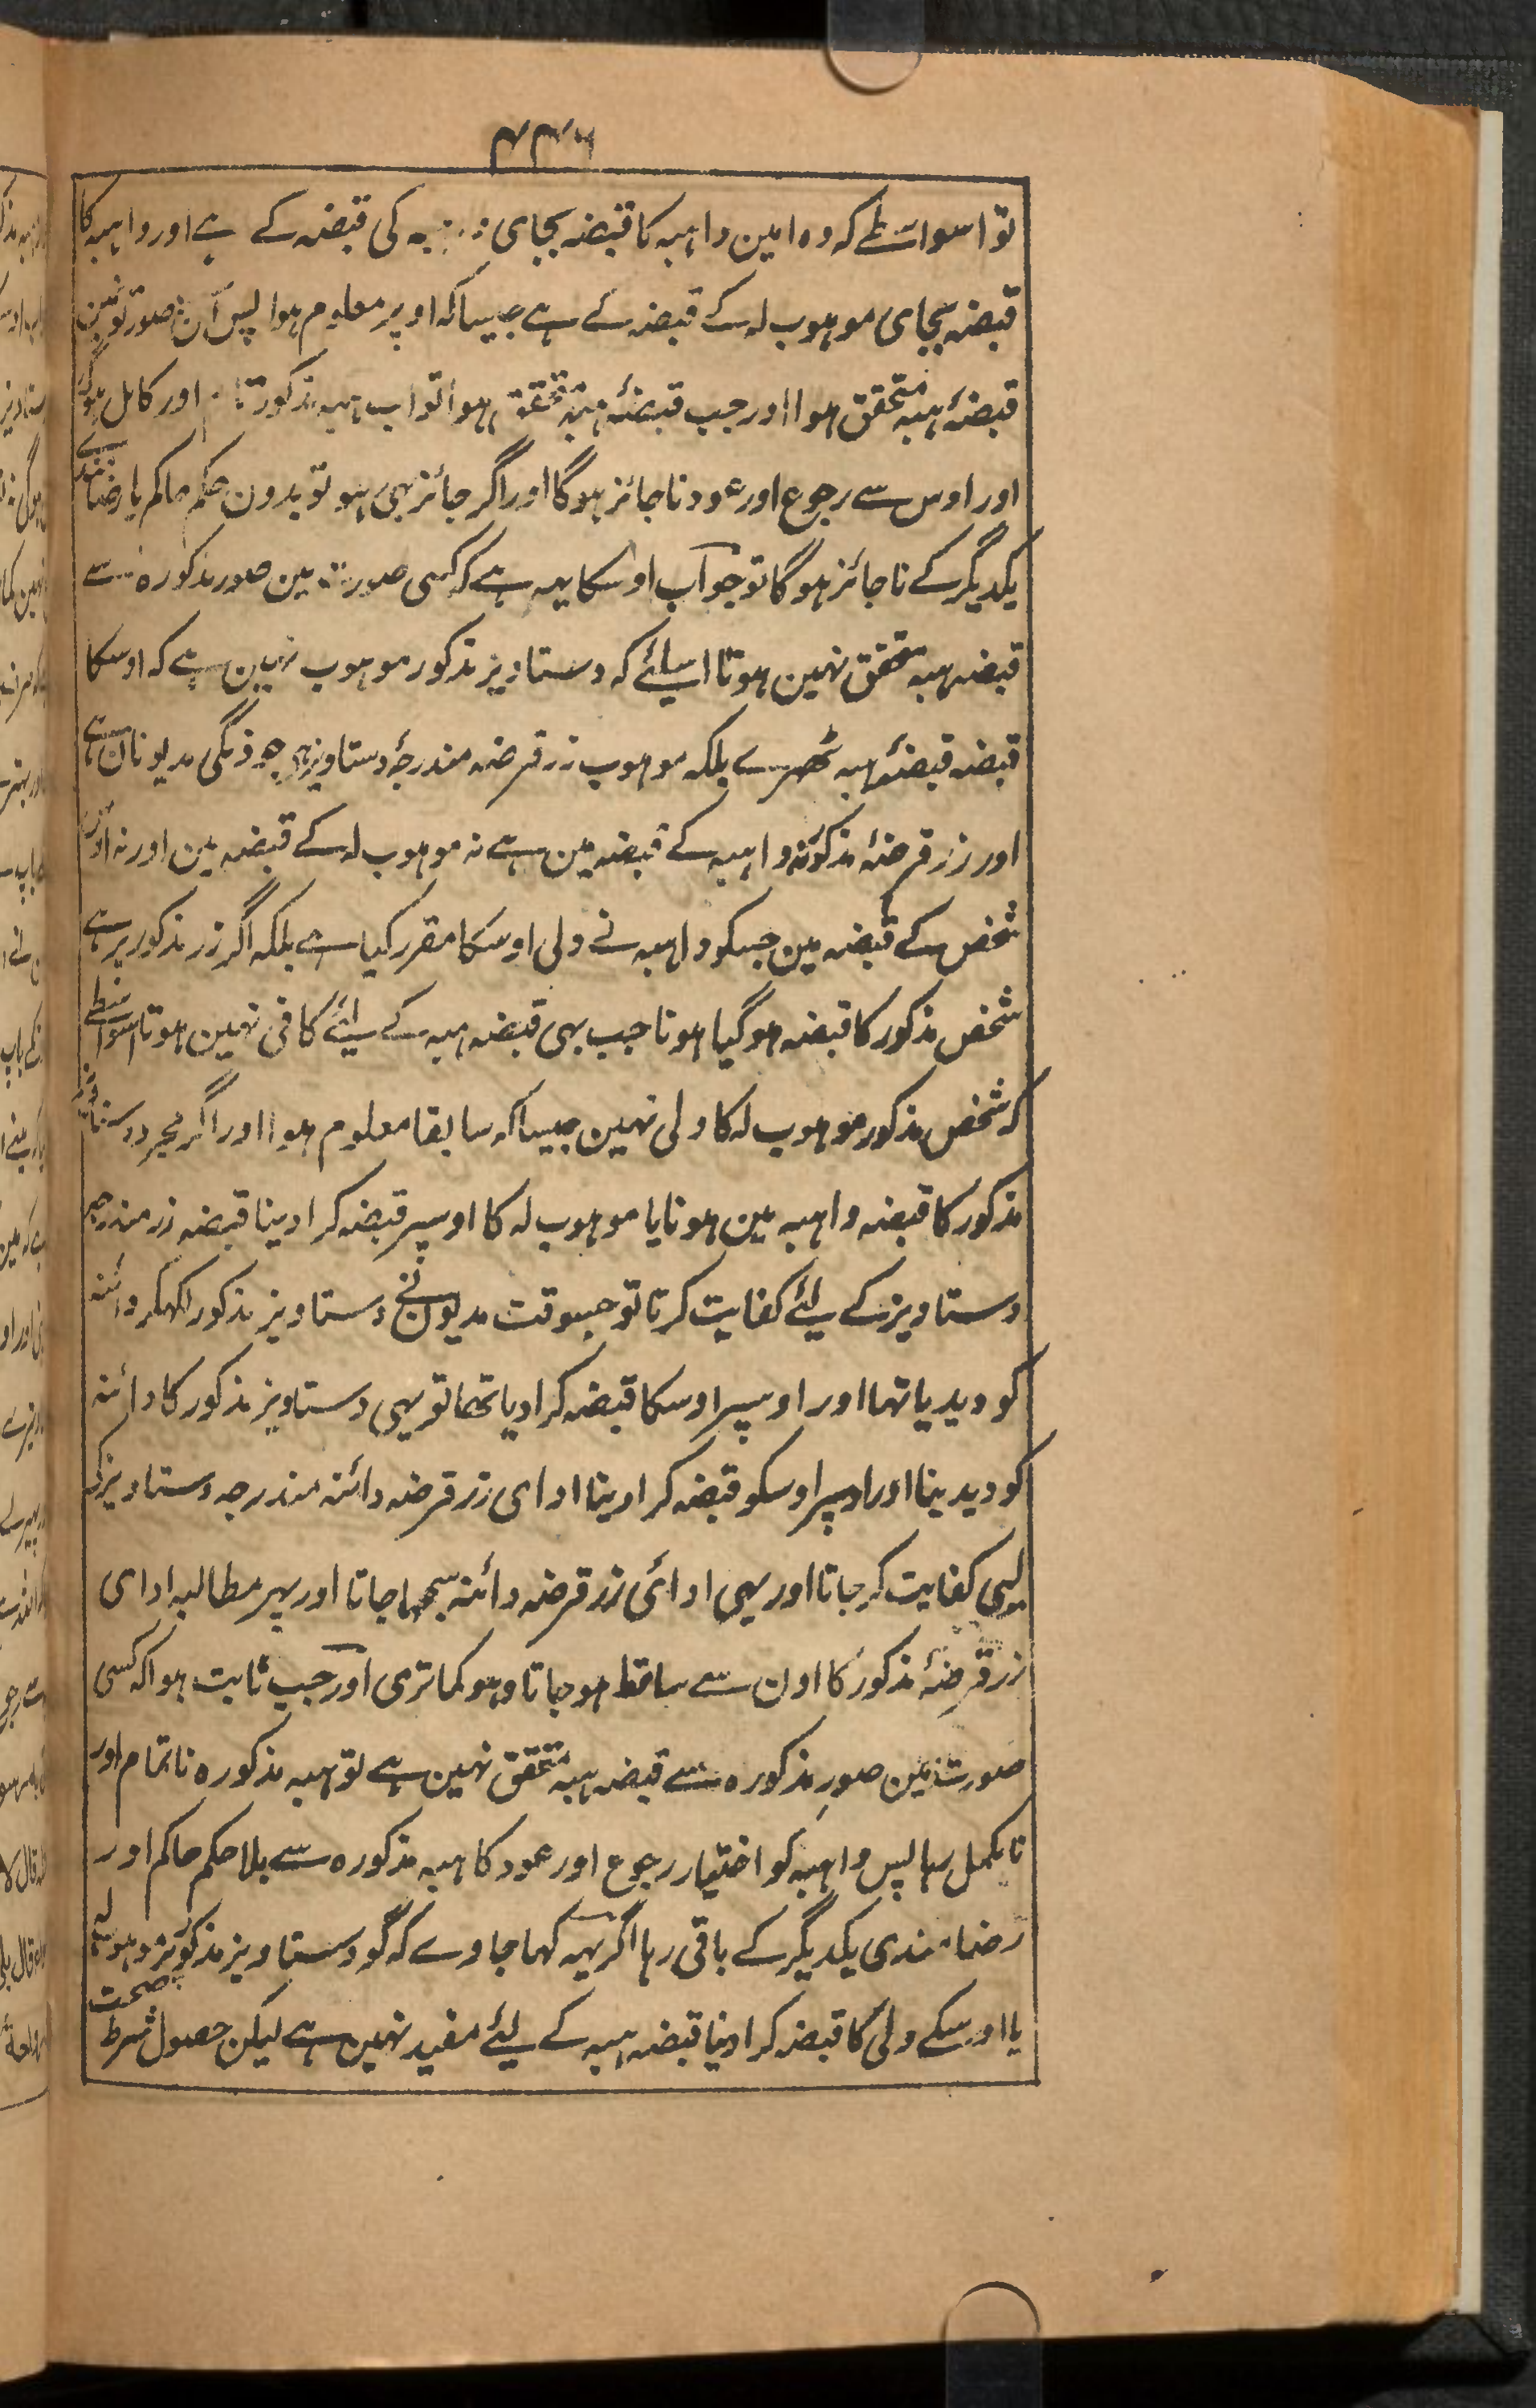 ۴۴۶
تو اسواسطے کہ وہ امین واہبہ کا قبضہ بجای کی قبضہ کے ہے اور واہبہ کا
قبضہ بجای موہوب لہ کے قبضہ کے ہے جیسا کہ اوپر معلوم ہوا پس ان صورتونمین
قبضۂ ہبہ متحقق ہوا اور جب قبضۂ ہبہ متحقق ہوا تو اب ہبہ مذکور اور کامل ہوگیا
اور اوس سے رجوع اور عود ناجائز ہوگا اور اگر جائز بہی ہو تو بدون حکم حاکم یا رضامندی
یکدیگر کے ناجائز ہوگا تو جواب اوسکا یہہ ہے کہ کسی صورت مین صور مذکورہ سے
قبضہ ہبہ متحقق نہین ہوتا اسیلئے کہ دستاویز مذکور موہوب نہین ہے کہ اوسکا
قبضہ قبضۂ ہبہ ٹھرے بلکہ موہوب زر قرضہ مندرجۂ دستاویز ہی جو ذمگی مدیونان ہے
اور زر قرضۂ مذکور نہ واہبہ کے قبضہ مین ہے نہ موہوب لہ کے قبضہ مین اور نہ اوس
شخص کے قبضہ مین جسکو واہبہ نے ولی اوسکا مقرر کیا ہے بلکہ اگر زر مذکور پر ہے
شخص مذکور کا قبضہ ہوگیا ہوتا جب بہی قبضہ ہبہ کے لیئے کافی نہین ہوتا اسواسطے
کہ شخص مذکور موہوب لہ کا ولی نہین جیسا کہ سابقا معلوم ہوا اور اگر مجرد دستاویز
مذکور کا قبضہ واہبہ مین ہونا یا موہوب لہ کا اوسپر قبضہ کرادینا قبضہ زر مندرجہ
دستاویز کے لیئے کفایت کرتا تو جسوقت مدیون نے دستاویز مذکور لکہکر دائنہ
کو دیدیا تہا اور اوسپر اوسکا قبضہ کرادیا تھا تو یہی دستاویز مذکور کا دائنہ
کو دیدینا اور اوسپر اوسکو قبضہ کرادینا ادای زر قرضہ دائنہ مندرجہ دستاویز کے
لیی کفایت کرجاتا اور یہی ادائی زر قرضہ دائنہ سمجہا جاتا اور پہر مطالبہ ادای
زر قرضۂ مذکور کا اون سے ساقط ہوجاتا وہو کما تری اور جب ثابت ہوا کہ کسی
صورت مین صور مذکورہ سے قبضہ ہبہ متحقق نہین ہے تو ہبہ مذکورہ ناتمام اور
نامکمل رہا پس واہبہ کو اختیار رجوع اور عود کا ہبہ مذکورہ سے بلا حکم حاکم اور
رضامندی یکدیگر کے باقی رہا اگر یہہ کہا جاوے کہ گو دستاویز مذکور پر موہوب لہ
یا اوسکے ولی کا قبضہ کرادینا قبضہ ہبہ کے لیئے مفید نہین ہے لیکن حصول شرط صحت